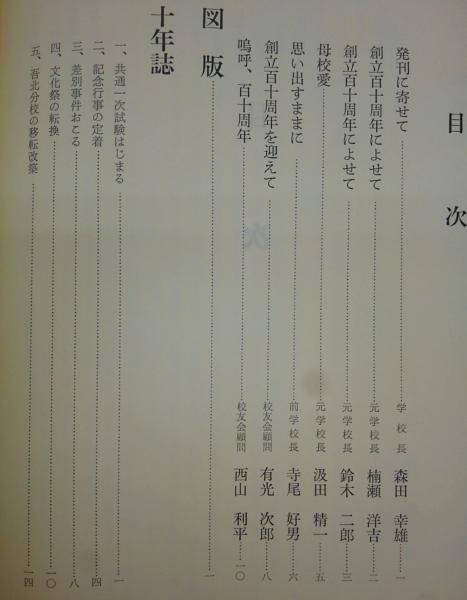 目次
発刊に寄せて……学校長 森田 幸雄…一
創立百十周年によせて……元学校長 楠瀬 洋吉…二
創立百十周年によせて……元学校長 鈴木 二郎…三
母校愛……元学校長 汲田 精一…五
思い出すままに……前学校長 寺尾 好男…六
創立百十周年を迎えて……校友会顧問 有光 次郎…八
嗚呼、百十周年……校友会顧問 西山 利平…一〇
図版……一
十年誌
一、共通一次試験はじまる……一
二、記念行事の定着……四
三、差別事件おこる……八
四、文化祭の転換……一〇
五、吾北分校の移転改築……一四